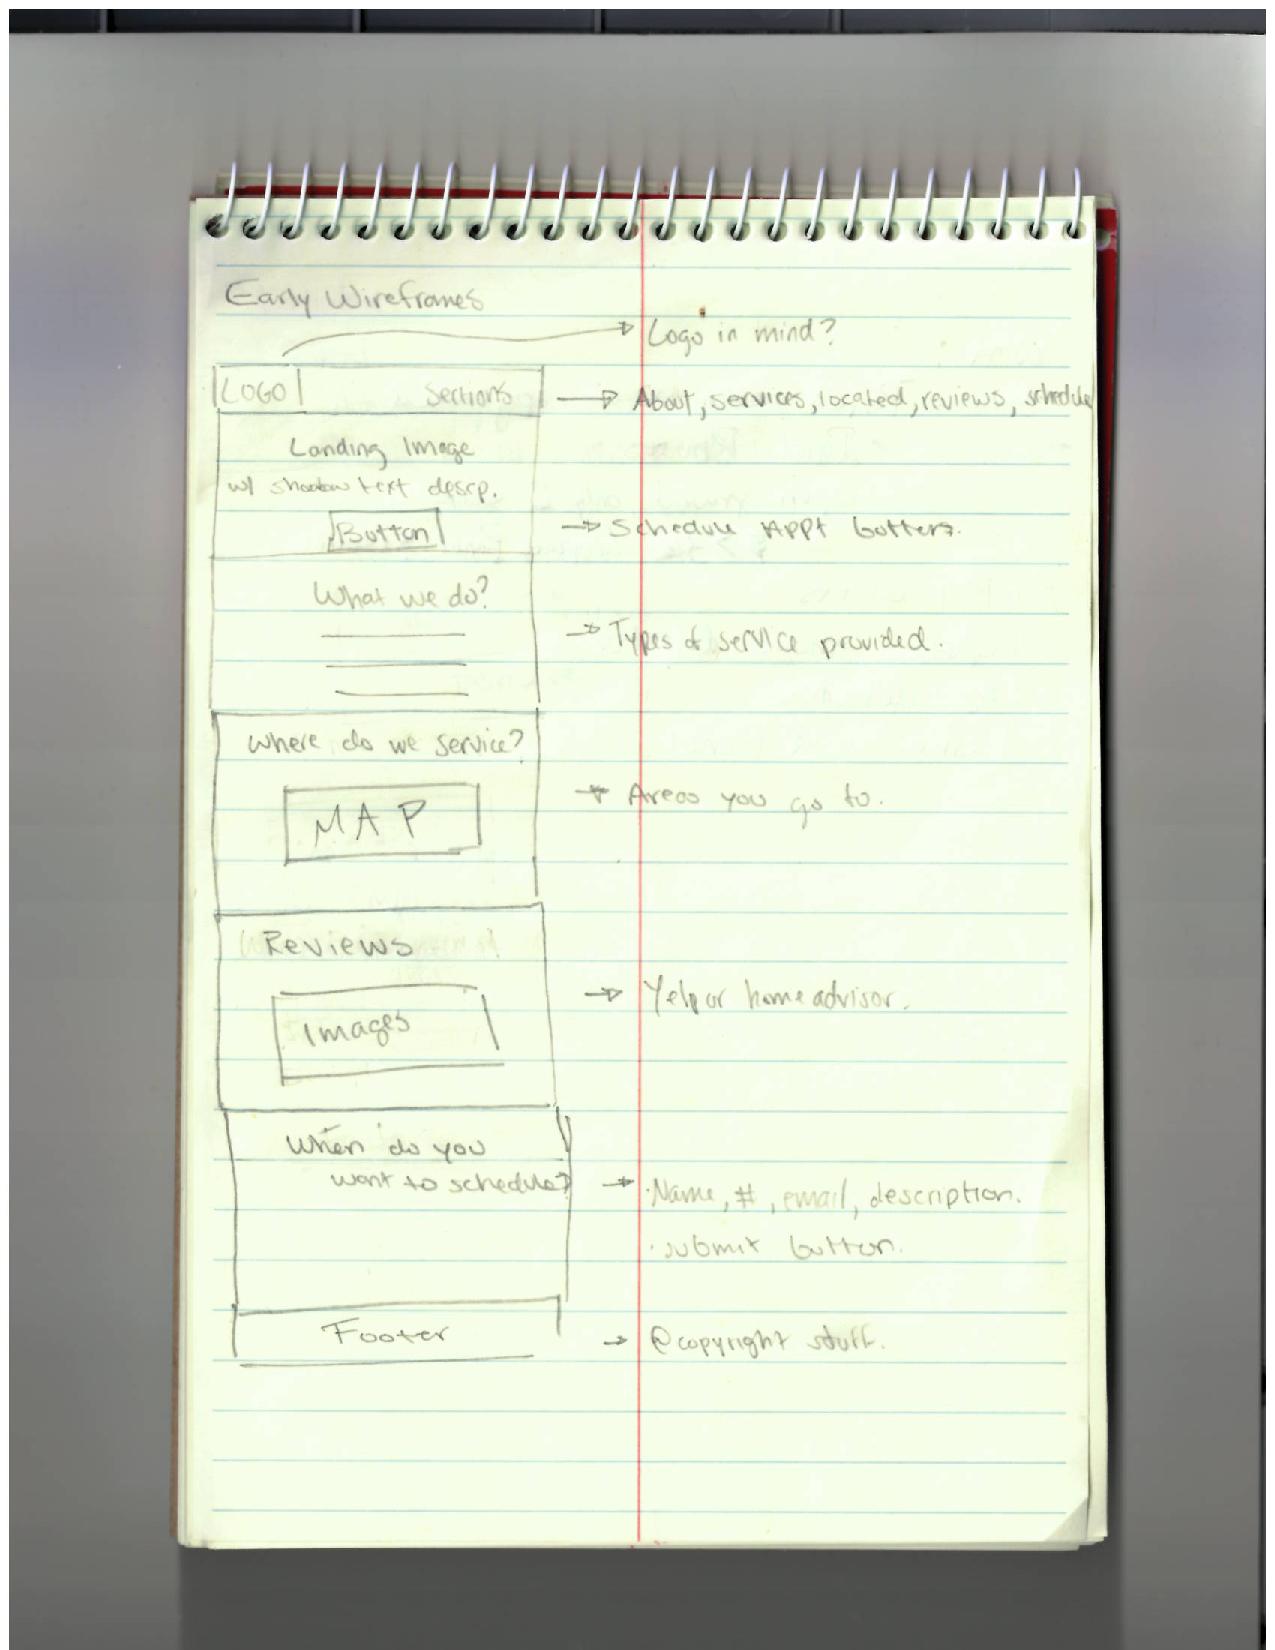 Early Wireframes
Logo in mind?
LOGO
Sections
About, services, located, reviews, schedule
Landing Image
w/ shadow text descp.
Button
Schedule APPt
What we do?
Types of service provided.
Where do we service?
MAP
Areas you go to.
Reviews
Images
Yelp or home advisor.
When do you
want to schedule?
·Name, #, email, description.
·submit button.
Footer
@copyright stuff.